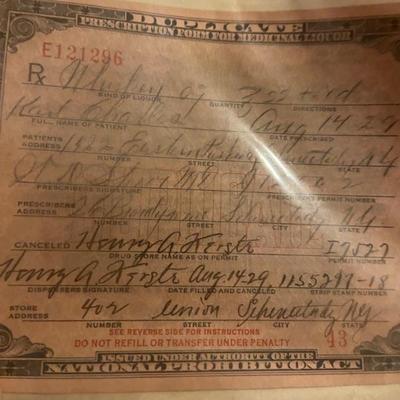 DUPLICATE
PRESCRIPTION FORM FOR MEDICINAL LIQUOR
E121296
Rx Whiskey
KIND OF LIQUOR QUANTITY DIRECTIONS
Aug 14-29
FULL NAME OF PATIENT DATE PRESCRIBED
PATIENTS
ADDRESS Schenectady NY
NUMBER STREET CITY STATE
PRESCRIBERS SIGNATURE PRESCRIBER'S PERMIT NUMBER
PRESCRIBERS
ADDRESS Schenectady NY
NUMBER STREET CITY STATE
CANCELED Henry A Kerste I7527
DRUG STORE NAME AS ON PERMIT PERMIT NUMBER
Henry A Kerste Aug 14 29 1155297-18
DISPENSERS SIGNATURE DATE FILLED AND CANCELLED STRIP STAMP NUMBER
STORE
ADDRESS 402 Union Schenectady NY
NUMBER STREET CITY STATE
SEE REVERSE SIDE FOR INSTRUCTIONS
DO NOT REFILL OR TRANSFER UNDER PENALTY 43
ISSUED UNDER AUTHORITY OF THE
NATIONAL PROHIBITION ACT